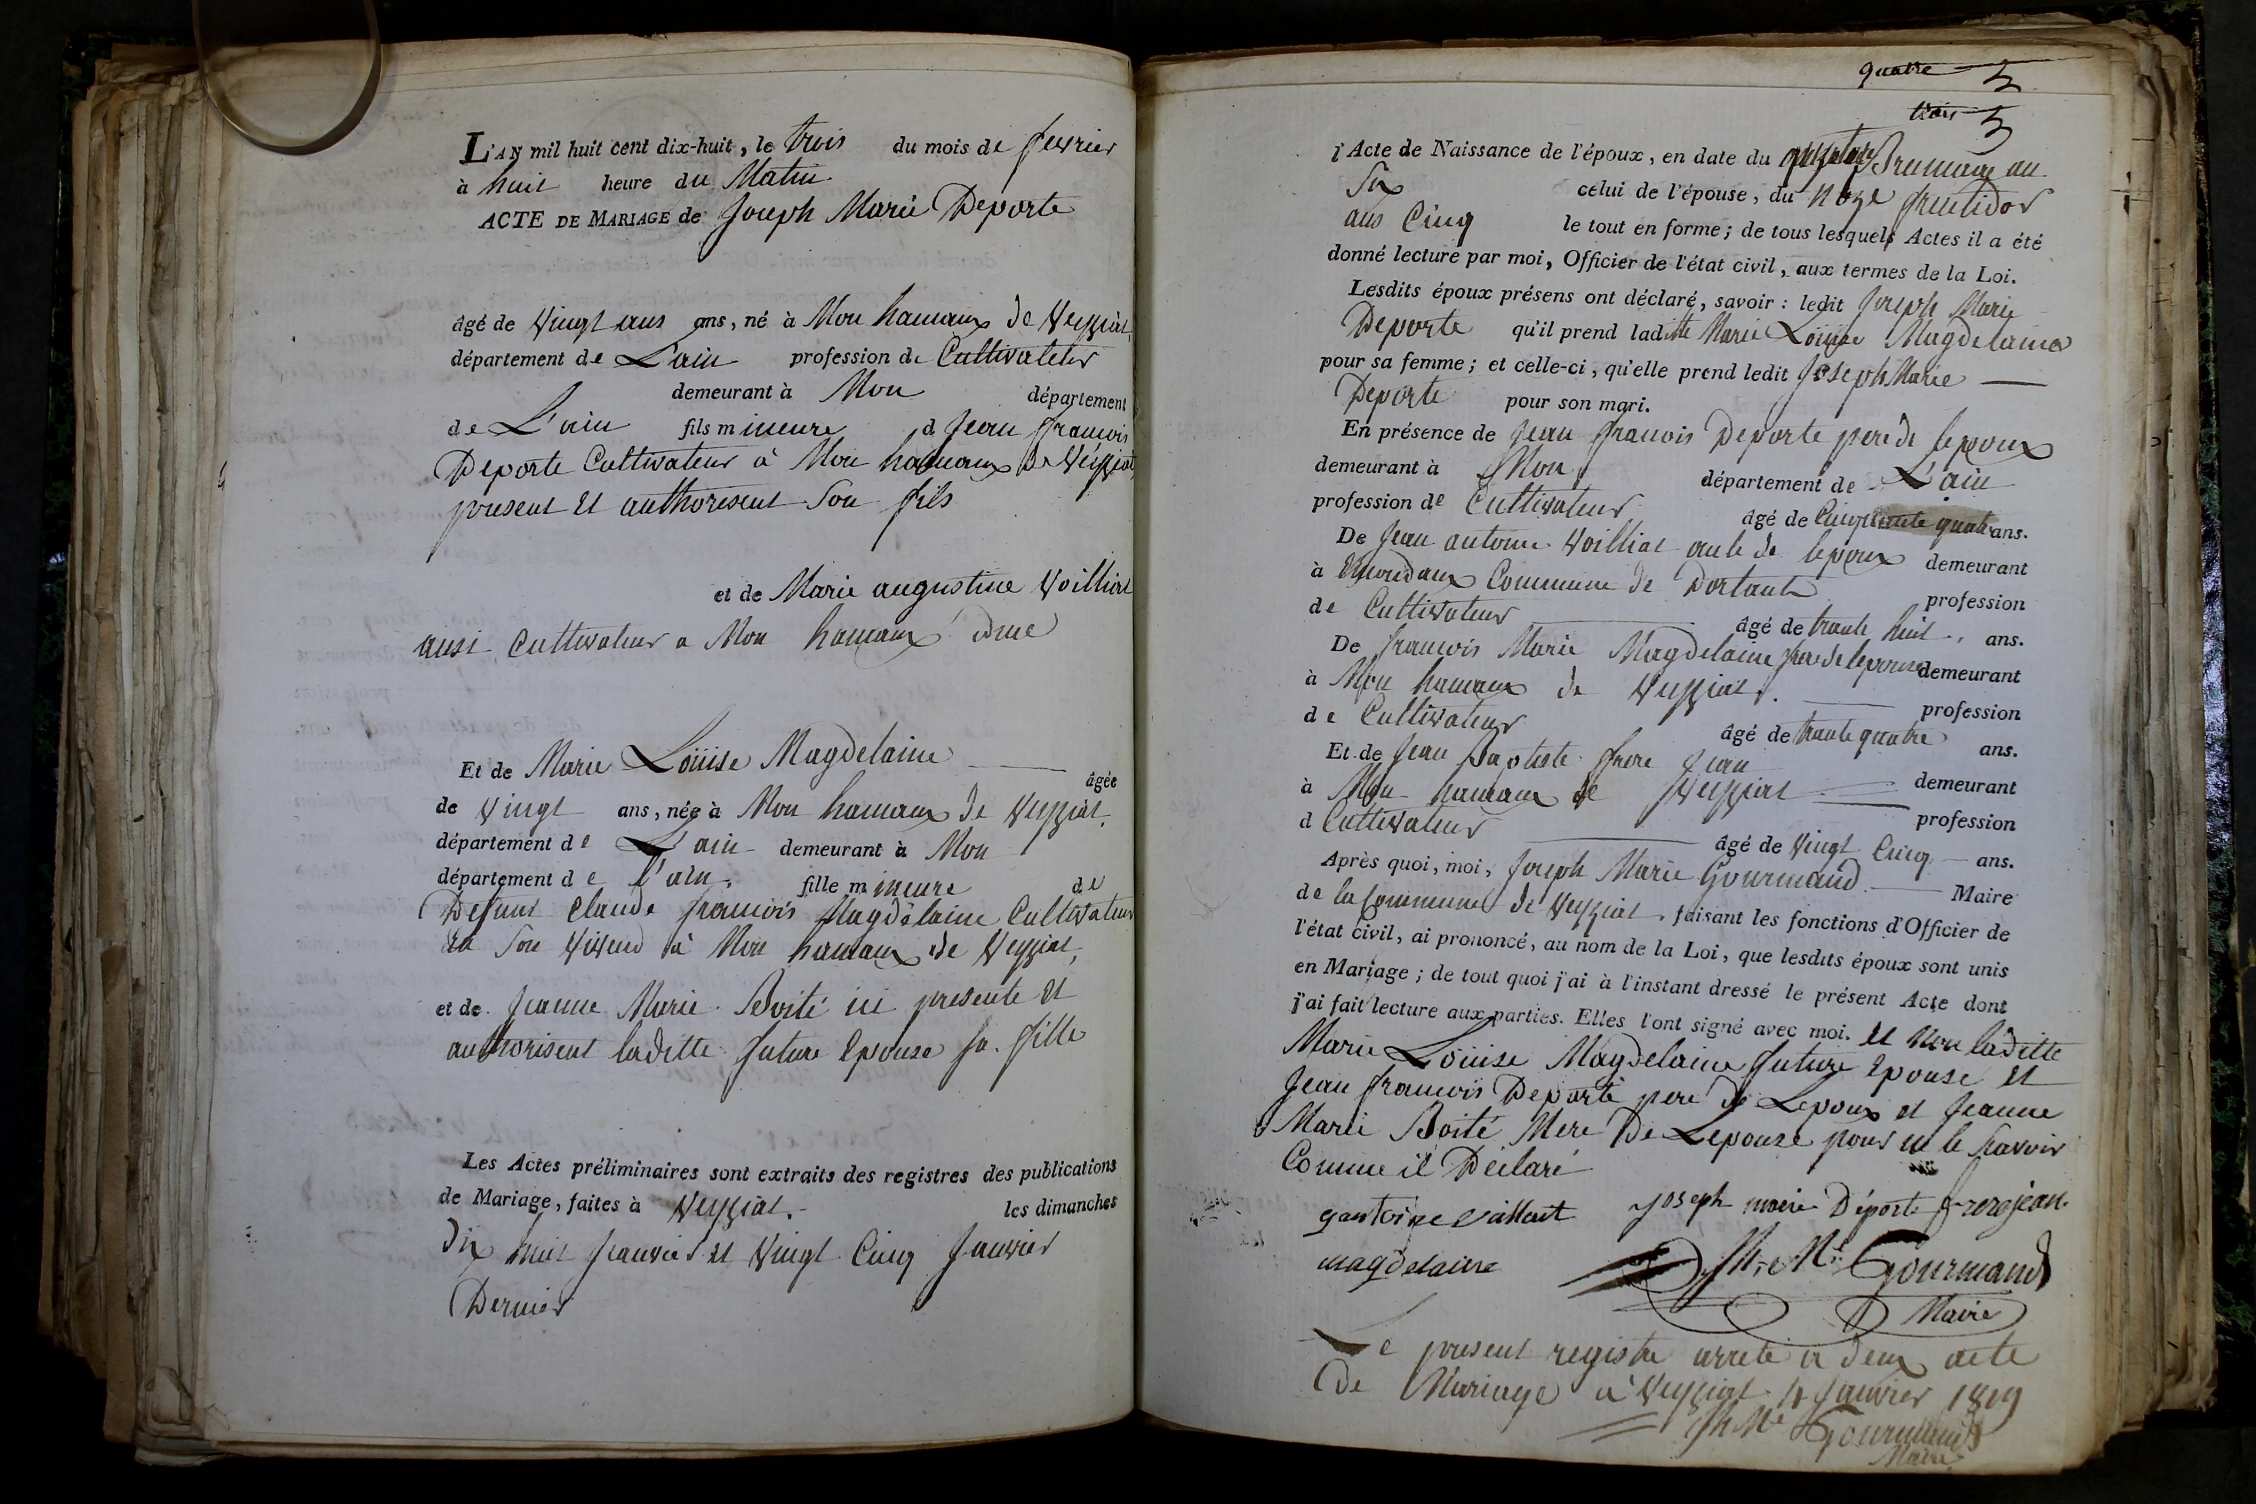 L'AN mil huit cent dix-huit, le trois du mois de fevrier
à huit heure du Matin
ACTE DE MARIAGE de Joseph Marie Deporte
âgé de Vingt ans ans, né à Mon hamaux de Veyziat,
département de L'ain profession de Cultivateur
demeurant à Mon département
de L'ain fils mineure d Jean francois
Deporte Cultivateur à Mon hamaux de Veyziat,
present et authorisent Son fils
et de Marie augustine Voilliat
ausi Cultivateur a Mon hamaux
Et de Marie Loüise Magdelaine âgée
de Vingt ans, née à Mon hamaux de Veyziat.
département de L'ain demeurant à Mon
département de L'ain. fille mineure de
Defunt Claude francois Magdelaine Cultivateur
Son Vivend à Mon hamaux de Veyziat,
et de Jeanne Marie Boité ici presente et
authorisent laditte future Epouse Sa fille
Les Actes préliminaires sont extraits des registres des publications
de Mariage, faites à Veyziat. les dimanches
dix huit Janvier et Vingt Cinq Janvier
Dernier
quatre 3
trois 3
l'Acte de Naissance de l'époux, en date du Brumaire an
Six celui de l'épouse, du fruitidor
ans Cinq le tout en forme; de tous lesquels Actes il a été
donné lecture par moi, Officier de l'état civil, aux termes de la Loi.
Lesdits époux présens ont déclaré, savoir: ledit Joseph Marie
Deporte qu'il prend laditte Marie Loüise Magdelaine
pour sa femme; et celle-ci, qu'elle prend ledit Joseph Marie
Deporte pour son mari.
En présence de Jean francois Deporte pere de lepoux
demeurant à Mon département de L'ain
profession de Cultivateur âgé de Cinquante quatre ans.
De Jean antoine Voilliat de lepoux demeurant
à Commune de Dortant profession
de Cultivateur âgé de trante huit ans.
De francois Marie Magdelaine frere de lepouse demeurant
à Mon hamaux de Veyziat. profession
de Cultivateur âgé de trante quatre ans.
Et de Jean Baptiste frere Jean demeurant
à Mon hamaux de Veyziat profession
d Cultivateur âgé de Vingt Cinq ans.
Après quoi, moi, Joseph Marie Gourmand Maire
de la Commune de Veyziat, faisant les fonctions d'Officier de
l'état civil, ai prononcé, au nom de la Loi, que lesdits époux sont unis
en Mariage; de tout quoi j'ai à l'instant dressé le présent Acte dont
j'ai fait lecture aux parties. Elles l'ont signé avec moi. et Non laditte
Marie Loüise Magdelaine future Epouse et
Jean francois Deporte pere de Lepoux et Jeanne
Marie Boité Mere De Lepouse pour ne le Scavoir
Comme il Declaré
Joseph marie Déporte frerejean
magdelaine Jh. Me. Gourmand
Maire
Le present registre arreté à deux acte
De Mariage à Veyziat Janvier 1819
Jh Me Gourmand
Maire